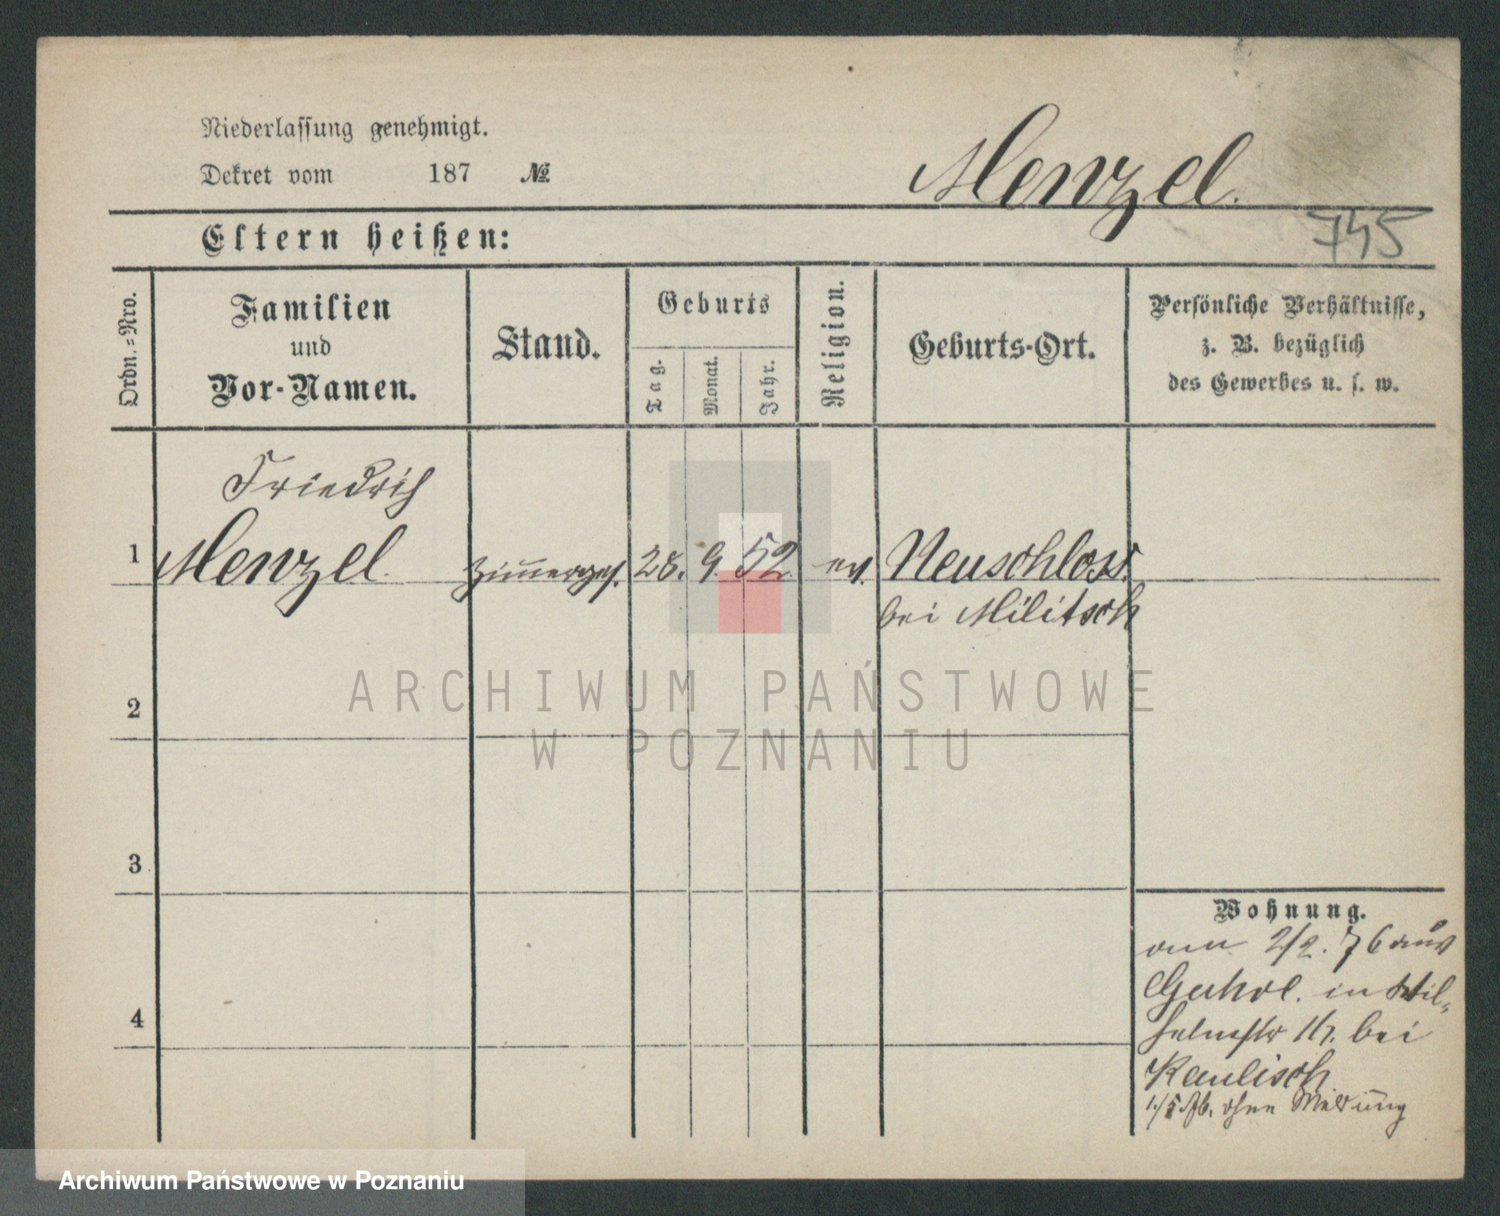 Niederlassung genehmigt.
Dekret vom 187 №
Menzel.
745
Eltern heißen:
Ordn.-Nro.
Familien
und
Vor-Namen.
Stand.
Geburts
Tag.
Monat.
Jahr.
Religion.
Geburts-Ort.
Persönliche Verhältnisse,
z. B. bezüglich
des Gewerbes u. s. w.
Friedrich
1 Menzel. Zimerges. 28. 9. 52. ev. Neuschloss
bei Militsch
ARCHIWUM PAŃSTWOWE
W POZNANIU
2
3
4
Wohnung.
2/2. 76 aus
in Wil-
helmstr 17. bei
Kaulisch
ohne Meldung
Archiwum Państwowe w Poznaniu